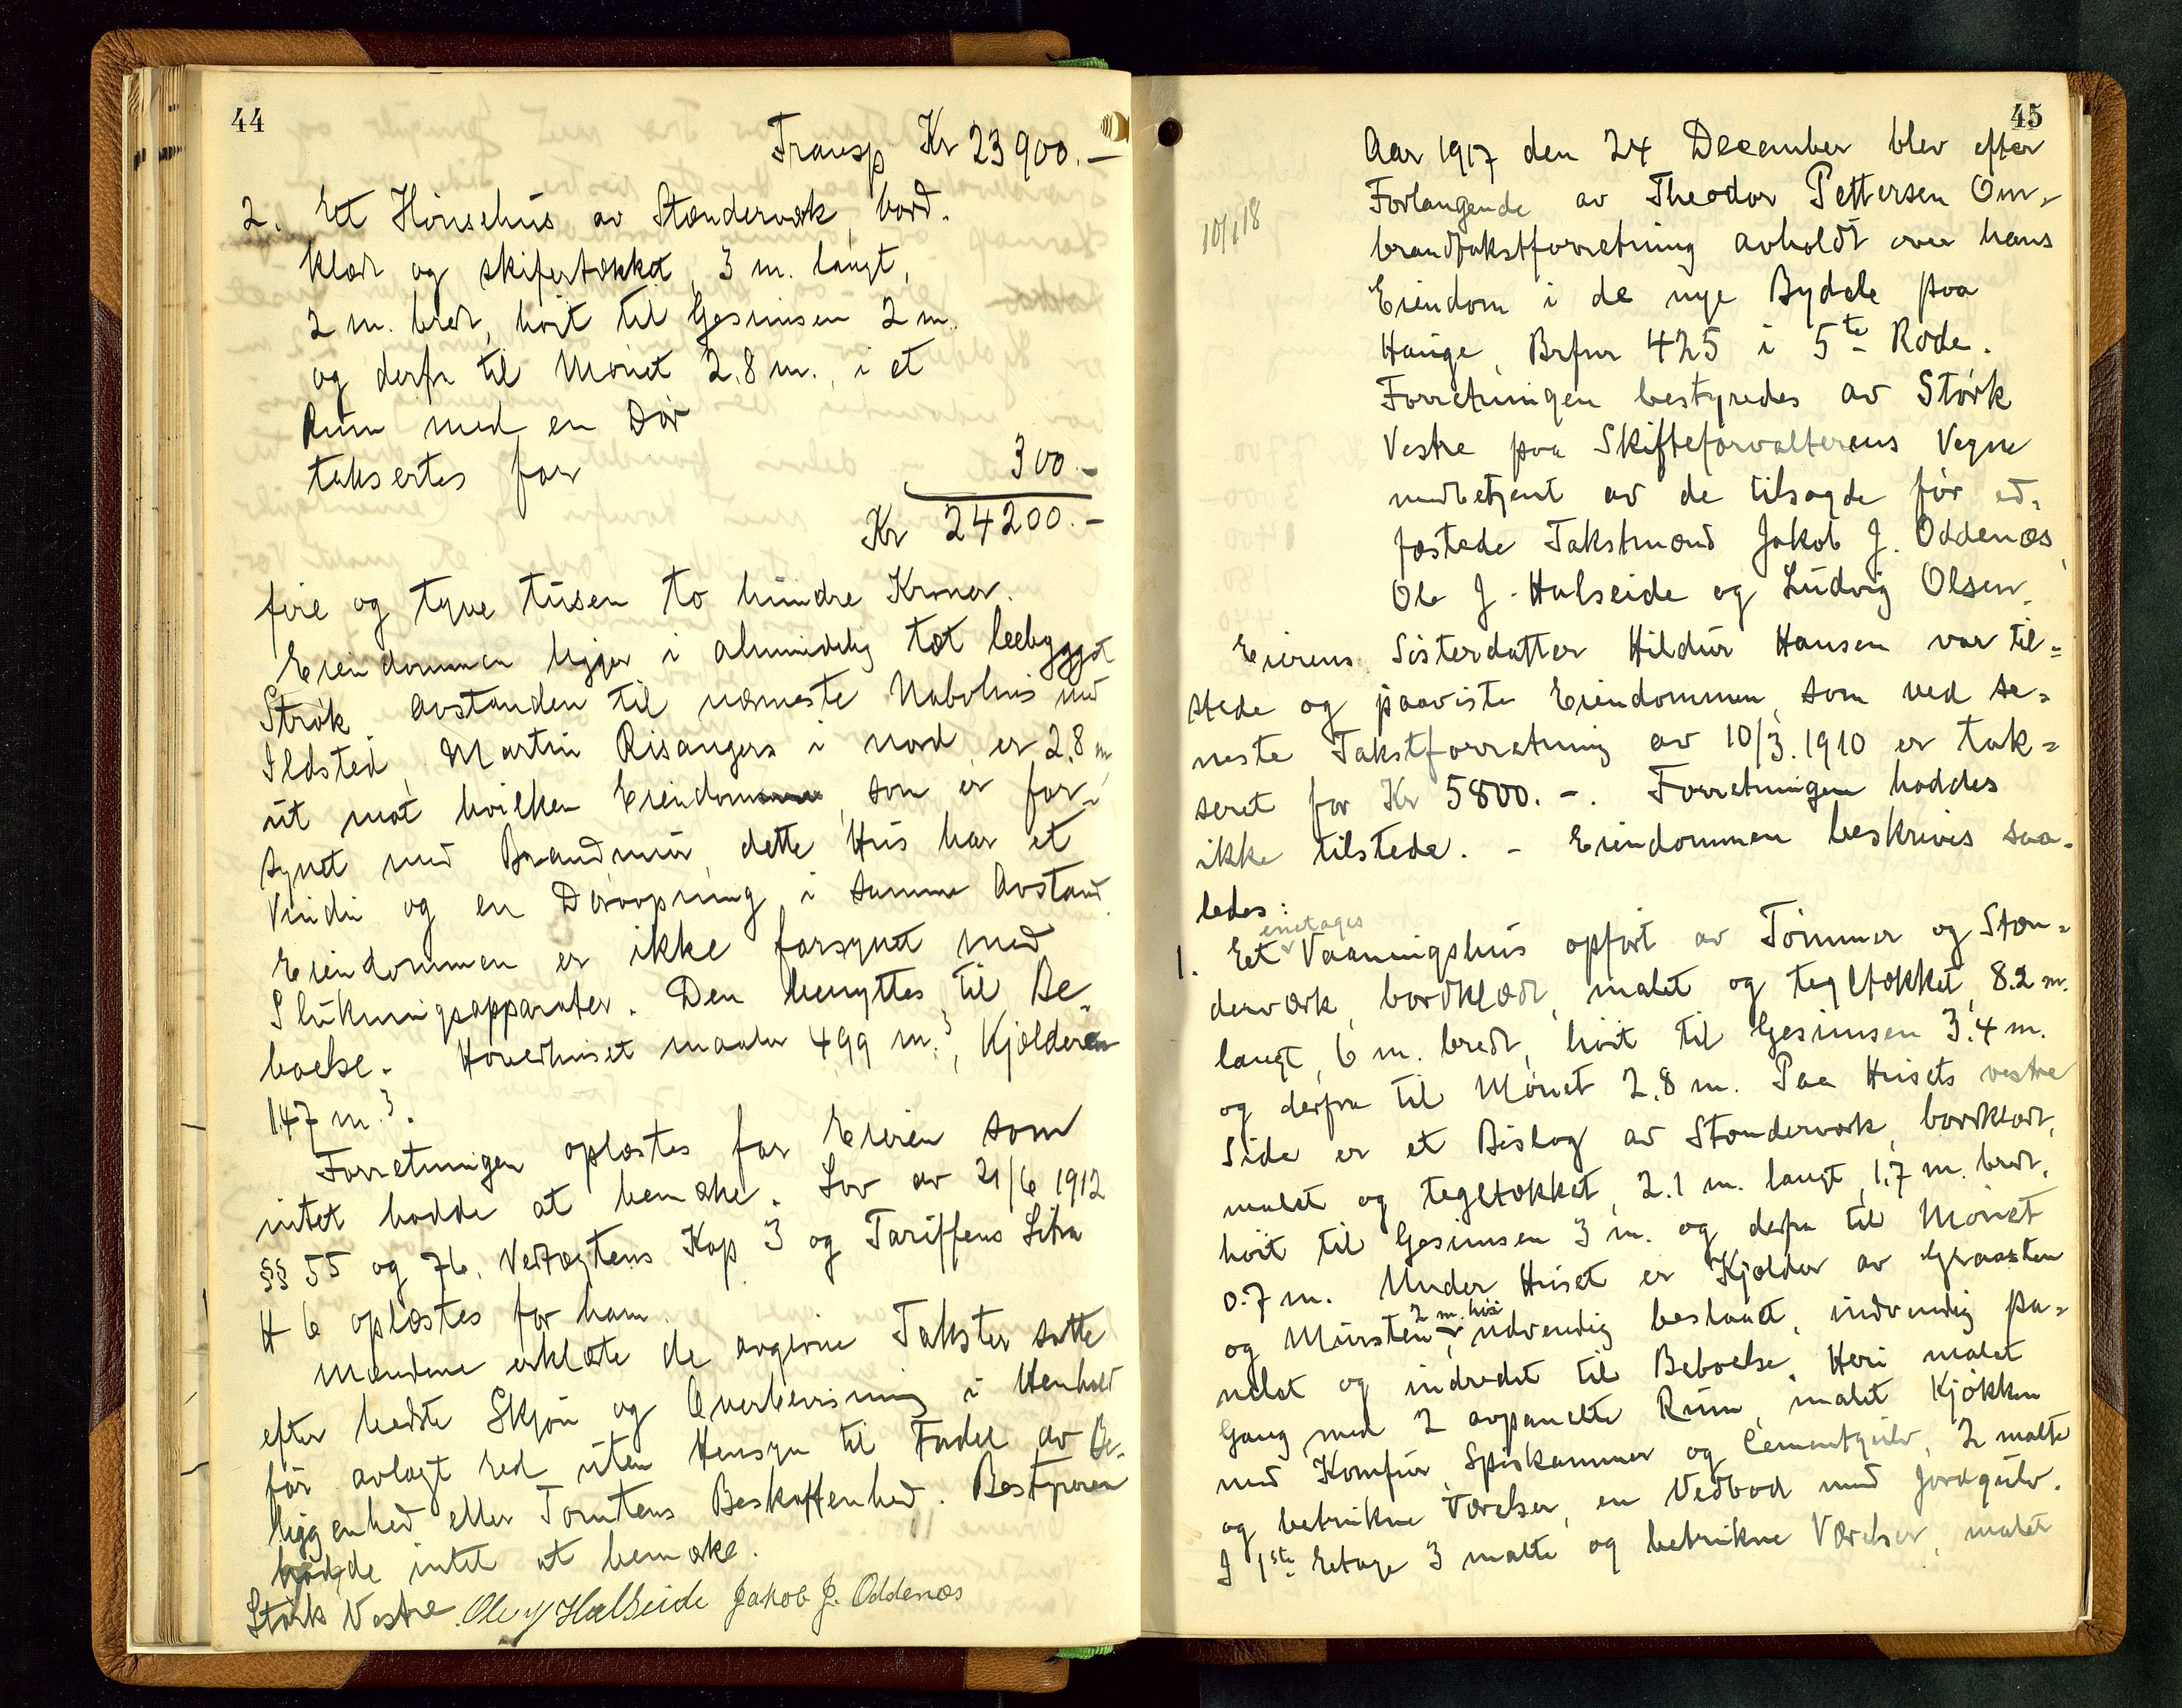 44
Transp Kr 23900.-
2. Et Hönsehus av Stænderværk, bord-
klædt og skifertækket, 3 m. langt,
2 m. bredt, höit til Gesimsen 2 m.
og derfra til Mönet 2.8 m., i et
Rum med en Dör
taksertes for 300.-
Kr 24200.-
fire og tyve tusen to hundre Kroner.
Eiendommen ligger i almindelig tæt bebygget
Strøk. Avstanden til nærmeste Nabohus med
Ildsted, Martin Risangers i nord er 2.8 m,
ut mot hvilken Eiendom, som er for-
synet med Brandmur, dette Hus har et
Vindu og en Döraapning i samme Avstand.
Eiendommen er ikke forsynet med
Slukningsapparater. Den benyttes til Be-
boelse. Hovedhuset maaler 499 m.³, Kjælderen
147 m.³.
Forretningen oplæstes for Eieren som
intet hadde at bemærke. Lov av 21/6 1912
§§ 55 og 76, Vedtægtens Kap 3 og Tariffens Litra
H 6 oplæstes for ham.
Mændene erklærte de avgivne Takster satte
efter bedste Skjön og Overbevisning i Henhold
för avlagt Ed uten Hensyn til Fordel av Be-
liggenhed eller Tomtens Beskaffenhed. Bestyreren
hadde intet at bemærke.
Störk Vestre. Ole J Halseide Jakob J. Oddenæs
45
10/1 18
Aar 1917 den 24 December blev efter
Forlangende av Theodor Pettersen Om-
brandtakstforretning avholdt over hans
Eiendom i de nye Bydele paa
Hauge, Brfnr 425 i 5te Rode.
Forretningen bestyredes av Störk
Vestre paa Skifteforvalterens Vegne
medbetjent av de tilsagde för ed-
fæstede Takstmænd Jakob J. Oddenæs,
Ole J. Halseide og Ludvig Olsen.
Eierens Sösterdatter Hildur Hansen var til=
stede og paaviste Eiendommen, som ved se=
neste Takstforretning av 10/3.1910 er tak=
seret for Kr 5800.-. Forretningen haddes
ikke tilstede. - Eiendommen beskrives saa-
ledes:
1. Et enetages Vaaningshus opfört av Tömmer og Stæn=
derværk, bordklædt, malet og tegltækket, 8.2 m.
langt, 6 m. bredt, höit til Gesimsen 3.4 m.
og derfra til Mönet 2.8 m. Paa Husets vestre
Side er et Bislag av Stænderværk, bordklædt,
malet og tegltækket, 2.1 m. langt, 1.7 m. bredt,
höit til Gesimsen 3 m. og derfra til Mönet
0.7 m. Under Huset er Kjælder av Graasten
og Mursten, 2 m. höi, udvendig beslaaet, indvendig pa=
nelet og indredet til Beboelse. Heri malet
Gang med 2 avpanelte Rum, malet Kjökken
med Komfur, Spiskammer og Cementgulv, 2 malte
og betrukne Værelser, en Vedbod med Jordgulv.
I 1ste Etage 3 malte og betrukne Værelser, malet